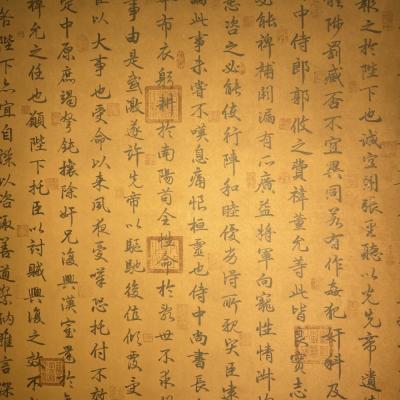 報之於陛下也誠宜開張聖聽以光先帝遺
陟罰臧否不宜異同若有作姦犯科及
中侍郎郭攸之費禕董允等此皆良實志
能裨補闕漏有所廣益將軍向寵性
悉咨之必能使行陣和睦優劣得所親賢臣遠
論此事未嘗不嘆息痛恨桓靈也侍中尚書長
卑布衣躬耕於南陽苟全性命於亂世不求
事由是感激遂許先帝以驅馳後值傾覆受
臣以大事也受命以來夙夜憂嘆恐托付不效
定中原庶竭駑鈍攘除奸兇復興漢室還於
禕允之任也願陛下托臣以討賊興復之效不
咎陛下亦宜自謀以諮諏善道察納雅言深